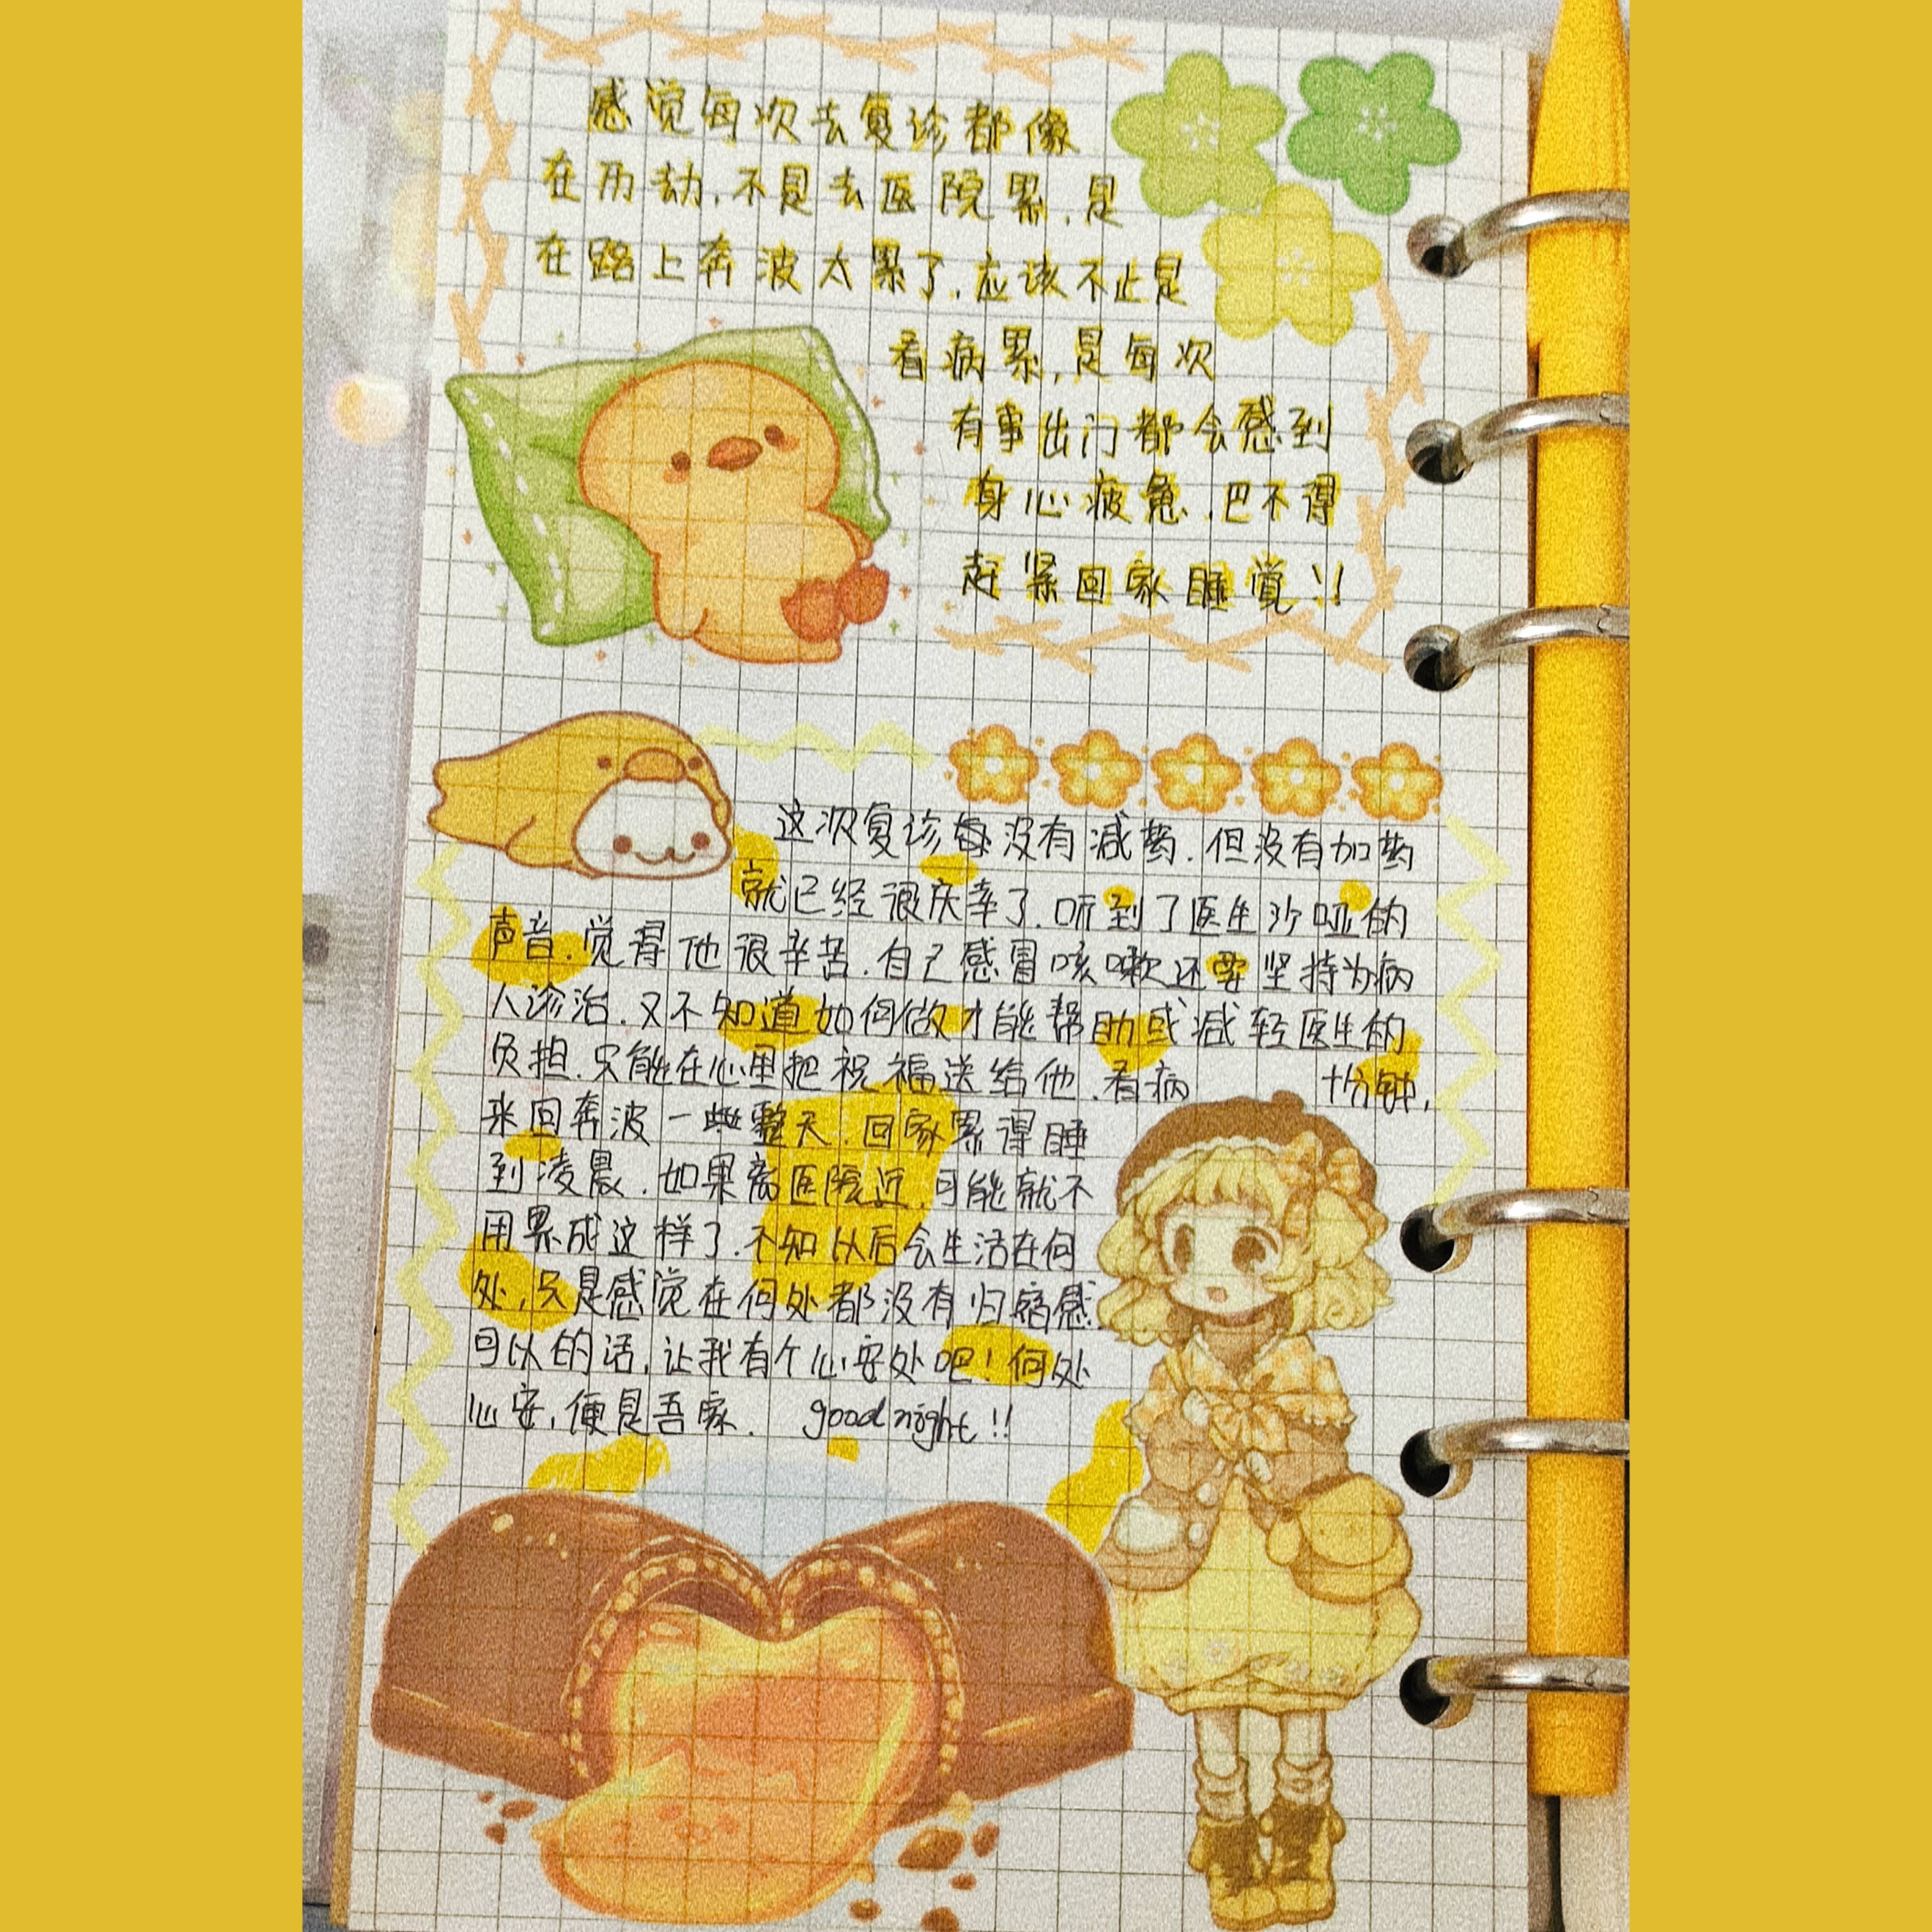 感觉每次去复诊都像
在历劫,不是去医院累,是
在路上奔波太累了,应该不止是
看病累,是每次
有事出门都会感到
身心疲惫,巴不得
赶紧回家睡觉!!
这次复诊没有减药,但没有加药
就已经很庆幸了,听到了医生沙哑的
声音,觉得他很辛苦,自己感冒咳嗽还要坚持为病
人诊治,又不知道如何做才能帮助或减轻医生的
负担,只能在心里把祝福送给他,看病 十分钟,
来回奔波一整天,回家累得睡
到凌晨,如果离医院近,可能就不
用累成这样了,不知以后会生活在何
处,只是感觉在何处都没有归宿感
可以的话,让我有个心安处吧!何处
心安,便是吾家. good night!!